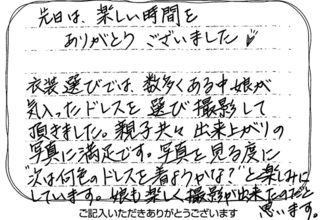 先日は、楽しい時間を
ありがとうございました
衣装選びでは、数多くある中娘が
気入ったドレスを選び撮影して
頂きました。親子共々出来上がりの
写真に満足です。写真を見る度に
"次は何色のドレスを着ようかな?"と楽しみに
しています。娘も楽しく撮影が出来たのだと
思います。
ご記入いただきありがとうございます